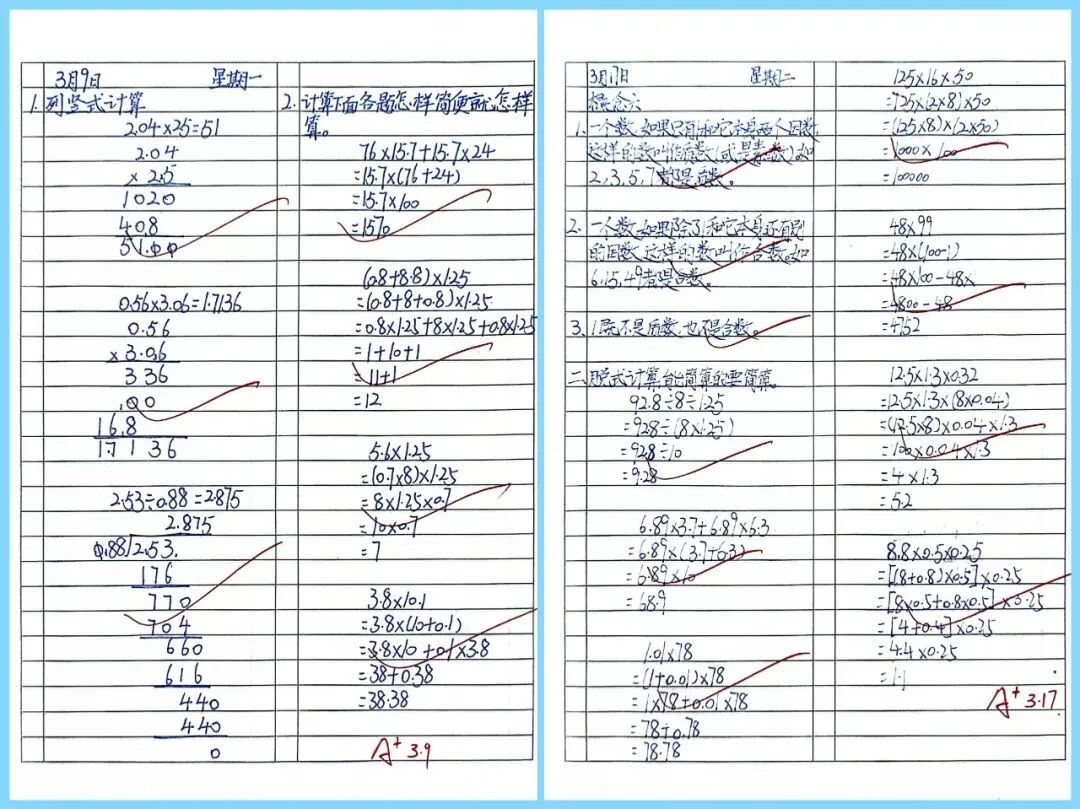 3月9日 星期一
1.列竖式计算
2.04×25=51
2.04
×2.5
1020
408
51.00
0.56×3.06=1.7136
0.56
×3.06
336
00
168
1.7136
2.53÷0.88=2.875
2.875
0.88/2.53.
176
770
704
660
616
440
440
0
2.计算下面各题怎样简便就怎样
算。
76×15.7+15.7×24
=15.7×(76+24)
=15.7×100
=1570
(0.8+8.8)×1.25
=(0.8+8+0.8)×1.25
=0.8×1.25+8×1.25+0.8×1.25
=1+10+1
=11+1
=12
5.6×1.25
=(0.7×8)×1.25
=8×1.25×0.7
=10×0.7
=7
3.8×10.1
=3.8×(10+0.1)
=3.8×10+0.1×3.8
=38+0.38
=38.38
A+ 3.9
3月17日 星期二
概念六
1.一个数,如果只有1和它本身两个因数,
这样的数叫作质数(或是素数)如
2,3,5,7都是质数。
2.一个数,如果除了1和它本身还有别
的因数,这样的数叫作合数。如
6,15,49都是合数。
3.1既不是质数,也不是合数。
二.脱式计算,能简算的要简算。
92.8÷8÷1.25
=92.8÷(8×1.25)
=92.8÷10
=9.28
6.89×3.7+6.89×6.3
=6.89×(3.7+6.3)
=6.89×10
=68.9
1.01×78
=(1+0.01)×78
=1×78+0.01×78
=78+0.78
=78.78
125×16×50
=125×(2×8)×50
=(125×8)×(2×50)
=1000×100
=100000
48×99
=48×(100-1)
=48×100-48×
=4800-48
=4752
12.5×1.3×0.32
=12.5×1.3×(8×0.04)
=(12.5×8)×0.04×1.3
=100×0.04×1.3
=4×1.3
=5.2
8.8×0.5×0.25
=[(8+0.8)×0.5]×0.25
=[8×0.5+0.8×0.5]×0.25
=[4+0.4]×0.25
=4.4×0.25
=1.1
A+ 3.17